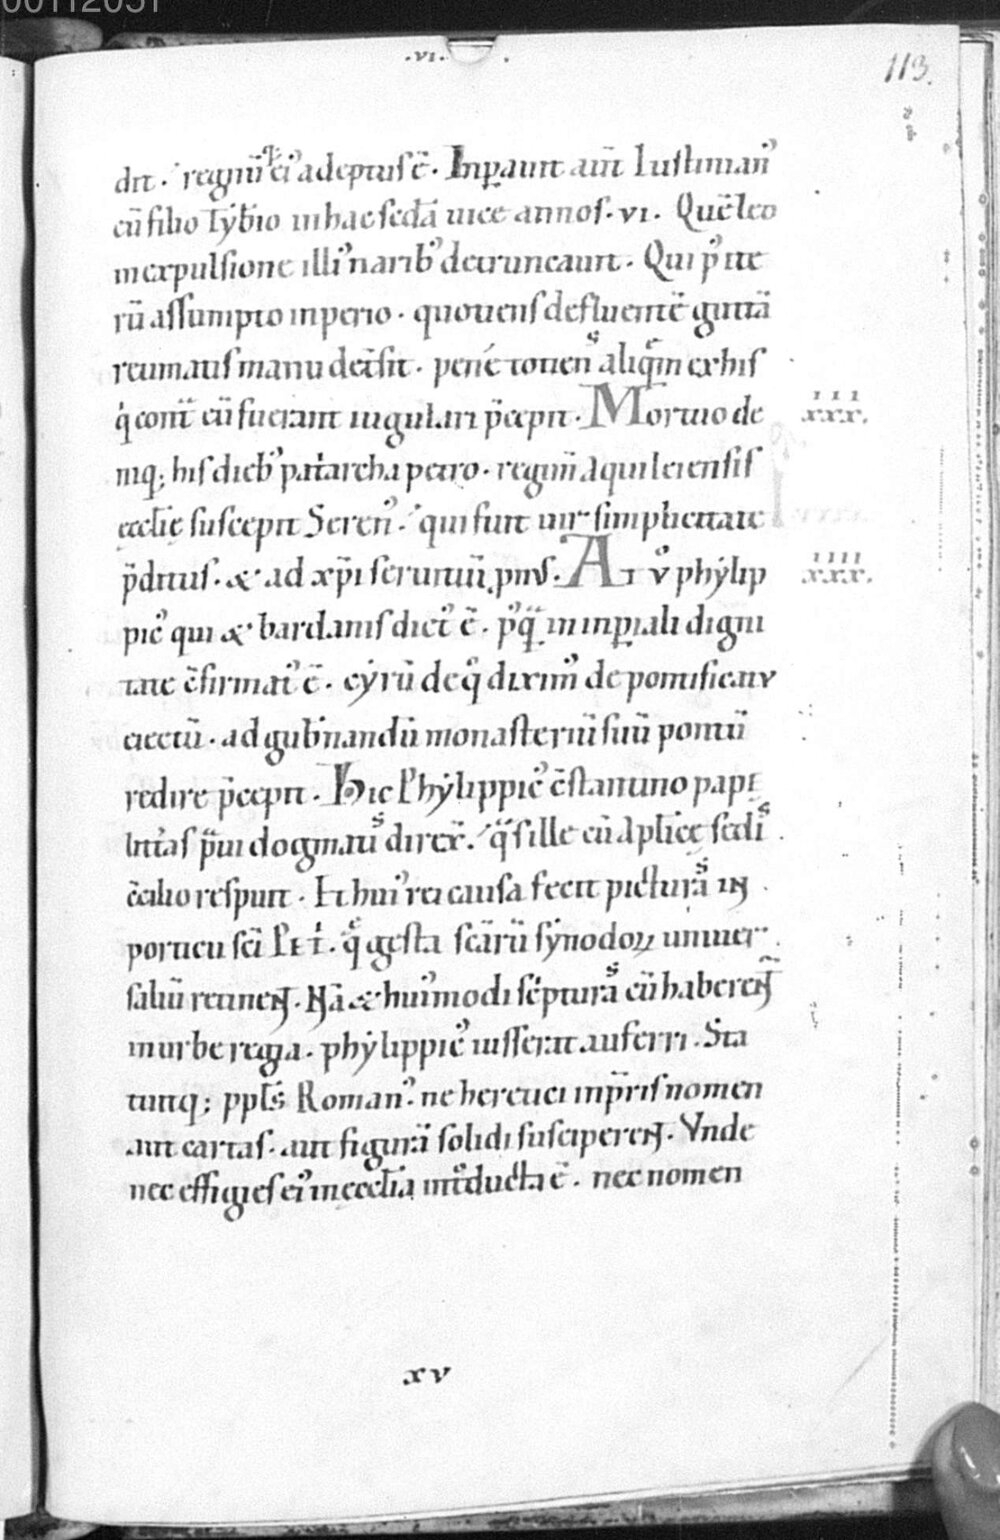 00112051
·VI·
113.
dit · regnūq; ei᾽ adeptus ē · Inꝑauit aūt Iustinian᾽
cū filio Tyb̄io in hac sedā uice annos · vi · Quē leo
in expulsione illi᾽ narib᾽ detruncauit · Qui p᾽ ite
rū assumpto inperio · quotiens defluentē guttā
reumatis manu det̄sit · pene totiens aliquē ex his
q̇ cont̄ eū fuerant iugulari p̄cepit · Mortuo de
III
xxx.
niq; his dieb᾽ pat̍archa petro · regim̄ Aquileiensis
ęcclię suscepit Seren᾽ · qui fuit uir simplicitate
p̄ditus · & ad xp̄i seruitiū pnus · At v᾽ phylip
IIII
xxx.
pic᾽ qui & bardanis dict᾽ ē · p᾽q̄ in inꝑiali digni
tate c̄firmat᾽ ē · cyrū de q᾽ dixim᾽ de pontificatv
eiectū · ad gub̄nandū monasteriū suū pontū
redire p̄cepit · Hic Phylippic᾽ c̄stantino papę
litt̄as p̄ui dogmatis direx̄ · q̄s ille cū Aplicę sedis
c̄cilio respuit · Et hui᾽ rei causa fecit picturās in
porticu sc̄i PETṙ · quę gesta sc̄ārū synodoꝝ uniuer
saliū retinent · Nā & hui᾽modi scripturās cū haberent̄
in urbe regia · phylippic᾽ iusserat auferri · Sta
tuitq; ppl̄s Roman᾽ · ne heretici inp̄ris nomen
aut cartas · aut figurā solidi susciperent · Vnde
nec effigies ei᾽ in ęccl̄ia int᾽ducta ē · nec nomen
xv